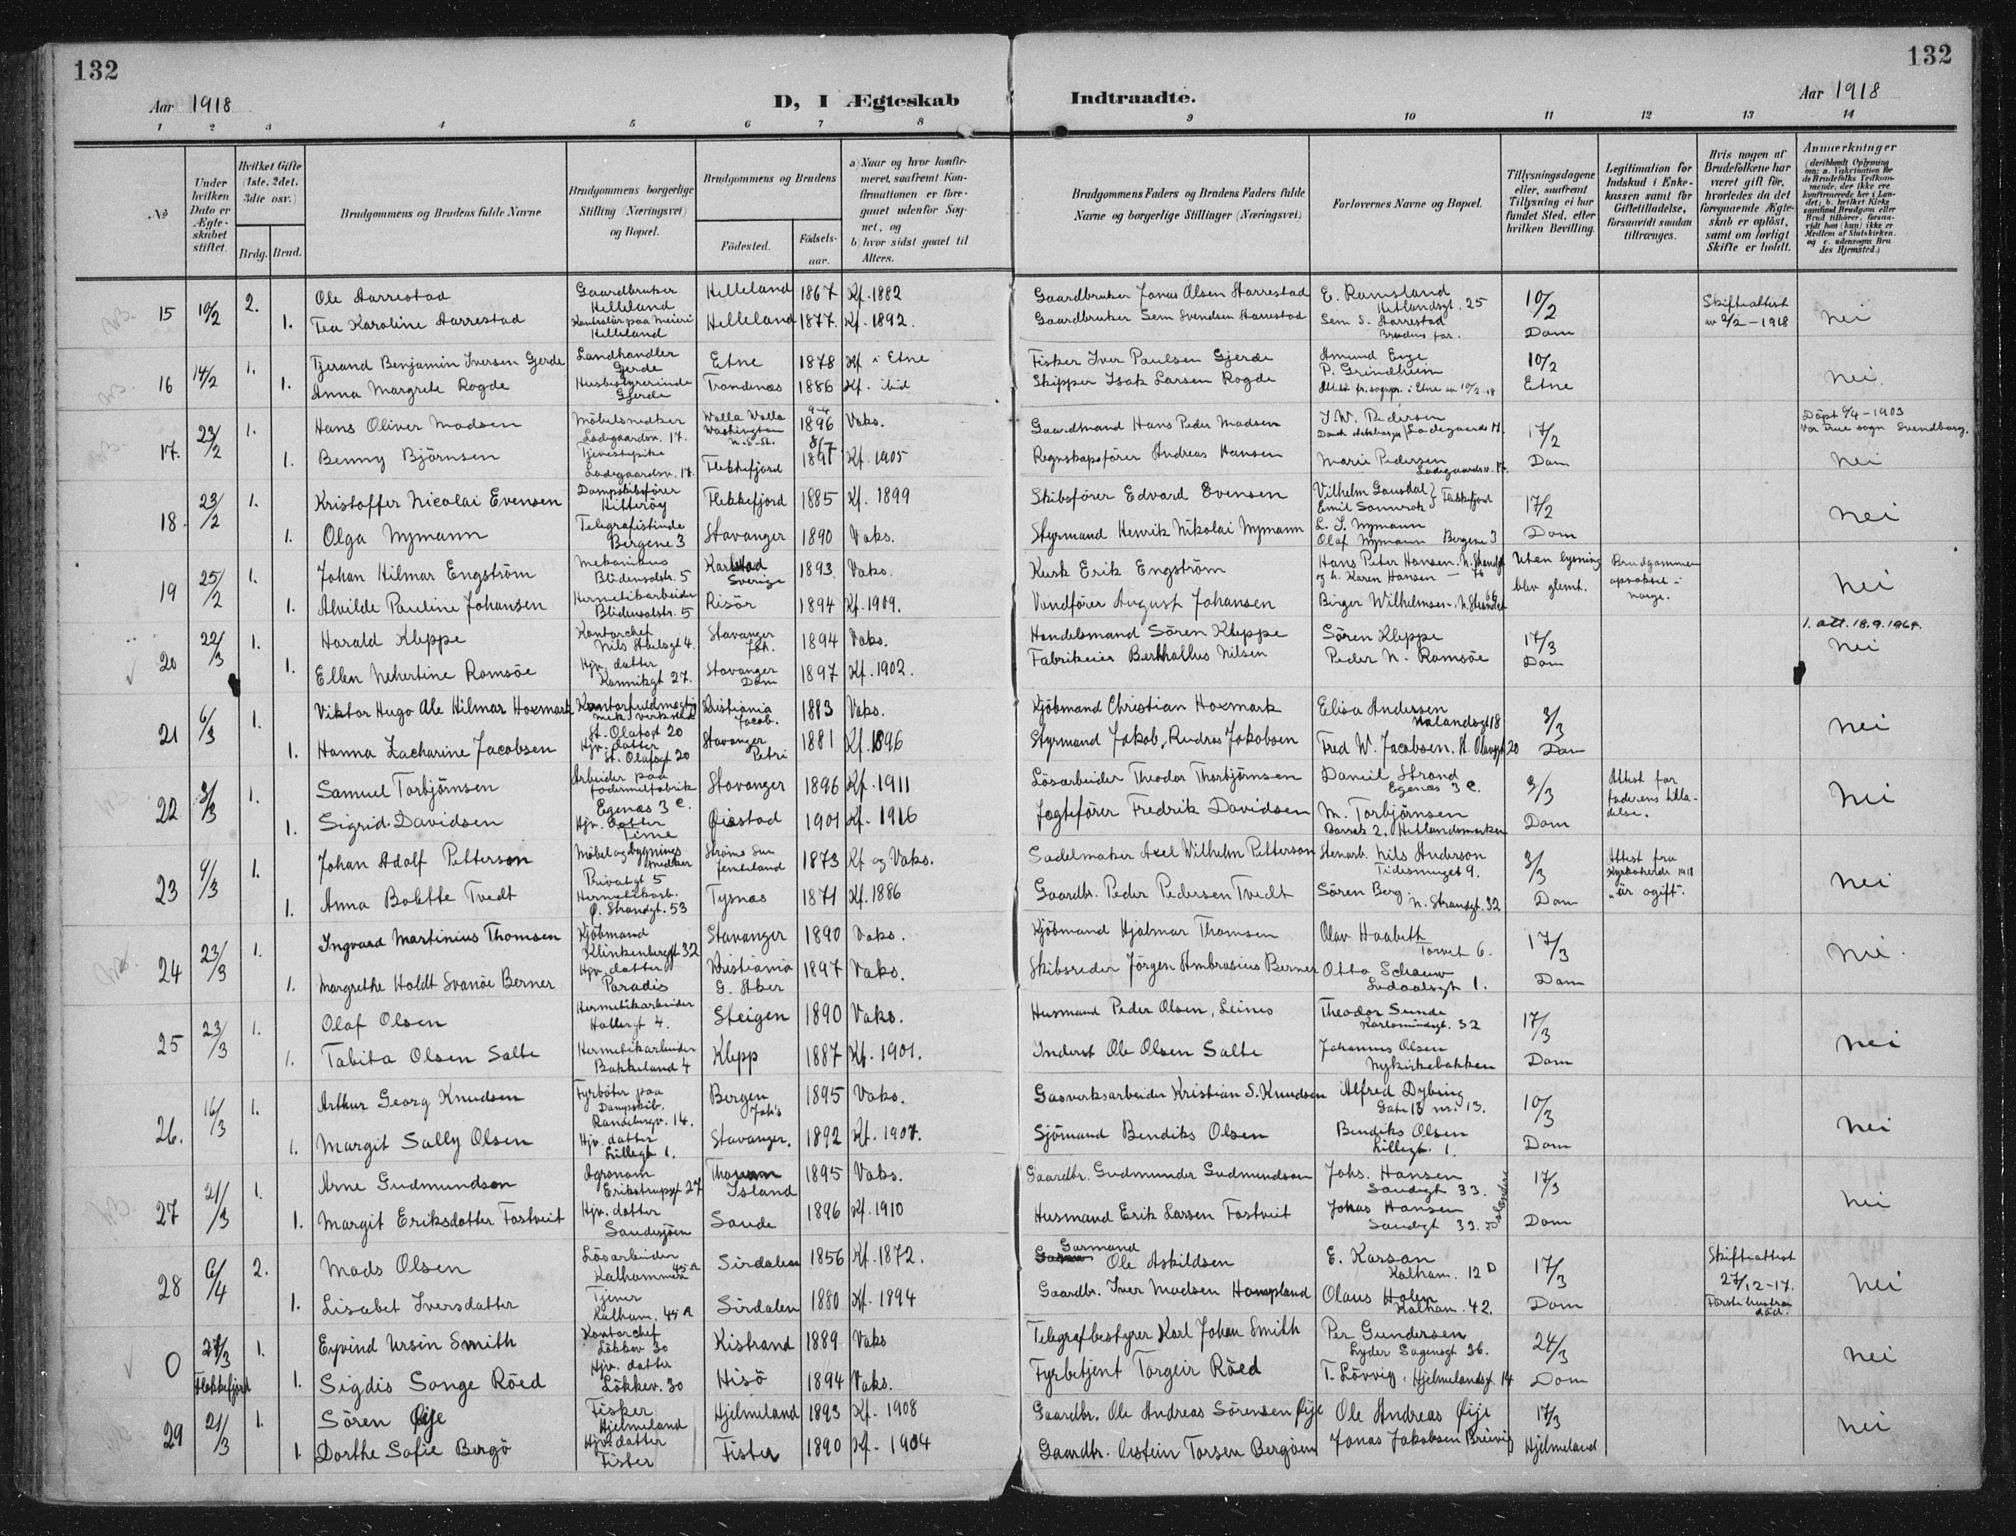 132
132
Aar 1918
D, I Ægteskab
Indtraadte.
Aar 1918
1 2 3 4 5 6 7 8 9 10 11 12 13 14
No
Under hvilken Dato er Ægteskabet stiftet.
Hvilket Gifte (1ste, 2det, 3die osv.)
Brdg. Brud.
Brudgommens og Brudens fulde Navne
Brudgommens borgerlige Stilling (Næringsvei) og Bopæl.
Brudgommens og Brudens
Fødested.
Fødselsaar.
a) Naar og hvor konfirmeret, saafremt Konfirmationen er foregaaet udenfor Sognet, og
b) hvor sidst gaaet til Alters.
Brudgommens Faders og Brudens Faders fulde Navne og borgerlige Stillinger (Næringsvei)
Forlovernes Navne og Bopæl.
Tillysningsdagene eller, saafremt Tillysning ei har fundet Sted, efter hvilken Bevilling.
Legitimation for Indskud i Enkekassen samt for Giftetilladelse, forsaavidt saadan tiltrænges.
Hvis nogen af Brudefolkene har været gift før, hvorledes da det foregaaende Ægteskab er opløst, samt om lovligt Skifte er holdt.
Anmærkninger
15 10/2 2. Ole Aarrestad Gaardbruker Helleland Helleland 1867 Kf. 1882 Gaardbruker Jonas Olsen Aarrestad E. Ramsland Hetlandsgt. 25 10/2 Skifteattest av 2/2-1918 nei
1. Tea Karoline Aarrestad Kontrolør paa Meieri Helleland Helleland 1877. Kf. 1892. Gaardbruker Sem Svendsen Aarrestad Sem S. Aarrestad Brudens far. Dom
16 14/2 1. Tjerand Benjamin Iversen Gjerde Landhandler Gjerde Etne 1878 Kf. i Etne Fisker Iver Paulsen Gjerde Amund Enge P. Grindheim 10/2 nei.
1. Anna Margrete Rogde Husbestyrerinde Gjerde Trondenæs 1886 Kf. ibid Skipper Isak Larsen Rogde Attest fr. sognpr. i Etne av 10/2-18 Etne
17. 23/2 1. Hans Oliver Madsen Möbelsnedker Ladegaardsv. 17. Walla Walla Washington 9-4 1896 Vaks. Gaardmand Hans Peder Madsen J. W. Pedersen Ladegaardsv. 17. 17/2 Döpt 9/4-1903 Vor Frue sogn Svendborg.
1. Benny Björnsen Tjenestepike Ladegaardsv. 17. Flekkefjord 1891 Kf. 1905 Regnskapsförer Andreas Hansen Marie Pedersen Ladegaardsv. 17. Dom nei
18. 23/2 1. Kristoffer Nicolai Evensen Dampskibsförer Hitteröy Flekkefjord 1885 Kf. 1899 Skibsförer Edvard Evensen Vilhelm Gausdal Emil Sannrok } Flekkefjord 17/2 nei
1. Olga Nymann Telegrafistinde Bergene 3 Stavanger 1890 Vaks. Styrmand Henrik Nikolai Nymann L. S. Nymann Olaf Nymann Bergene 3 Dom
19 25/2 1. Johan Hilmar Engström Mekanikus Blidensolstr. 5 Karlstad Sverige 1893 Vaks. Kusk Erik Engström Hans Peter Hansen. N. Strandgt og h. Karen Hansen - 76 Uten lysning Brudgommen opvokset i Norge. nei
1. Alvilde Pauline Johansen Hermetikarbeider Blidensolstr. 5 Risör 1894 Kf. 1909. Vandförer August Johansen Birger Wilhelmsen. N. Strandgt blev glemt.
20 22/3 1. Harald Kleppe Kontorchef Nils Abelsgt 4. Stavanger Joh. 1894 Vaks. Handelsmand Sören Kleppe Sören Kleppe 17/3 1. att. 18.9.1964. nei
1. Ellen Nehertine Ramsöe Hjv. datter Kannikgt 27. Stavanger Dom 1897 Kf. 1902. Fabrikeier Berthallus Nilsen Peder N. Ramsöe Dom
21 6/3 1. Viktor Hugo Ale Hilmar Hoxmark Kontorfuldmægtig mek. verksted St. Olafsgt 20 Kristiania Jacob. 1883 Vaks. Kjöbmand Christian Hoxmark Elisa Andersen Nalandsgt 18 3/3 nei
1. Hanna Zacharine Jacobsen Hjv. datter St. Olafsgt 20 Stavanger Petri 1881 Kf. 1896 Styrmand Jakob Andreas Jakobsen Fred W. Jacobsen. St. Olavsgt 20 Dom
22 3/3 1. Samuel Torbjörnsen Arbeider paa fodermelfabrik Egenæs 3 c. Stavanger 1896 Kf. 1911 Lösarbeider Theodor Thorbjörnsen Daniel Strand Egenæs 3 c. 3/3 Attest for faderens tilladelse. nei
1. Sigrid Davidsen Hjv. datter Time Øiestad 1901 Kf. 1916 Jagtefører Fredrik Davidsen M. Torbjörnsen Barrak 2. Hetlandsmarken Dom
23 9/3 1. Johan Adolf Petterson Möbel og bygnings snedker Privatgt 5 Ströms Sun Jemteland 1873 Kf. og Vaks. Sadelmaker Axel Wilhelm Petterson Stenarb. Nils Anderson Tidesmuget 9. 3/3 Attest fra Kyrkoherde 1918 "är ogift". nei
1. Anna Bolette Tvedt Hermetikarb. Ø. Strandgt. 53 Tysnæs 1871 Kf. 1886 Gaardbr. Peder Pedersen Tvedt Sören Berg N. Strandgt. 32 Dom
24 23/3 1. Ingvard Martinius Thomsen Kjöbmand Klinkenberggt 32 Stavanger 1890 Vaks. Kjöbmand Hjalmar Thomsen Olav Haabeth Torvet 6. 17/3 nei.
1. Margrethe Holdt Svanöe Berner Hjv. datter Paradis Kristiania G. Aker 1897 Vaks. Skibsreder Jörgen Ambrosius Berner Otto Schouw Ledaalsgt 1. Dom
25 23/3 1. Olaf Olsen Hermetikarbeider Hallesgt 4. Steigen 1890 Vaks. Husmand Peder Olsen, Leines Theodor Sunde Karlsmindegt. 32 17/3 nei
1. Tabita Olsen Salte Hermetikarbeider Bakkeland 4 Klepp 1887 Kf. 1901. Inderst Ole Olsen Salte Johannes Olsen Nykirkebakken Dom
26. 16/3 1. Arthur Georg Knudsen Fyrböter paa Dampskib. Randebergv. 14. Bergen Joh's 1895 Vaks. Gasverksarbeider Kristian S. Knudsen Alfred Dybing Gate 18 nr. 13. 10/3 nei
1. Margit Sally Olsen Hjv. datter Lillegt 1. Stavanger. 1892 Kf. 1907. Sjömand Bendiks Olsen Bendiks Olsen Lillegt. 1. Dom
27 21/3 1. Arne Gudmundson Agronom Erikstrupsgt 27 Island 1895 Vaks. Gaardbr. Gudmunder Gudmundson Johs. Hansen Sandsgt 33. 17/3 nei
1. Margit Eriksdatter Fostveit Hjv. datter Saudesjöen Saude 1896 Kf. 1910 Husmand Erik Larsen Fostveit Johas Hansen Sandsgt 33. Dom
28 6/4 2. Mads Olsen Lösarbeider Kalhammeren 45 A Sirdalen 1856 Kf. 1872. Garmand Ole Askildsen E. Karson Kalham. 12 D 17/3 Skifteattest 27/12-17. Förste hustru död. nei
1. Lisabet Iversdatter Tjener Kalham. 45 A Sirdalen 1880 Kf. 1894 Gaardbr. Iver Madsen Haugland Olaus Holen Kalham. 42. Dom
0 27/3 Flekkefjord 1. Eyvind Ursin Smith Kontorchef Lökkev 30 Kistrand 1889 Vaks Telegrafbestyrer Karl Johan Smith Per Gundersen Lyder Sagensgt 26. 24/3 nei
1. Sigdis Songe Röed Hjv. datter Lökkev. 30 Hisö 1894 Vaks. Fyrbetjent Torgeir Röed T. Lövvig, Hjelmelandsgt 14 Dom
29 21/3 1. Sören Øije Fisker Hjelmeland Hjelmeland 1893 Kf. 1908 Gaardbr. Ole Andreas Sörensen Øije Ole Andreas Øije 17/3 nei
1. Dorthe Sofie Bergö Hjv. datter Fister Fister 1890 Kf. 1904 Gaardbr. Østein Torsen Bergöen Jonas Jakobsen Breivig Hjelmeland